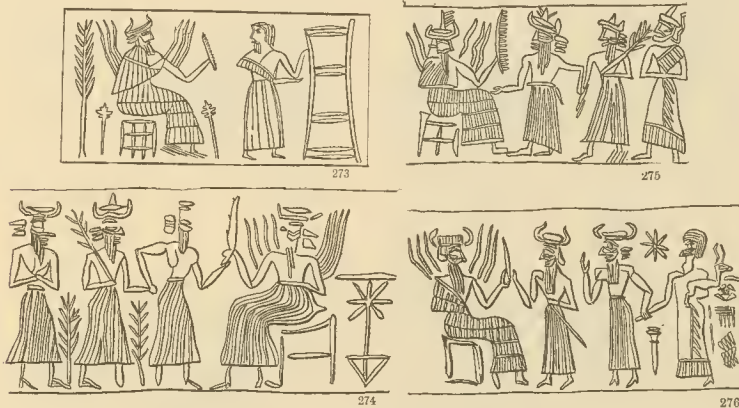 273
275
274
276